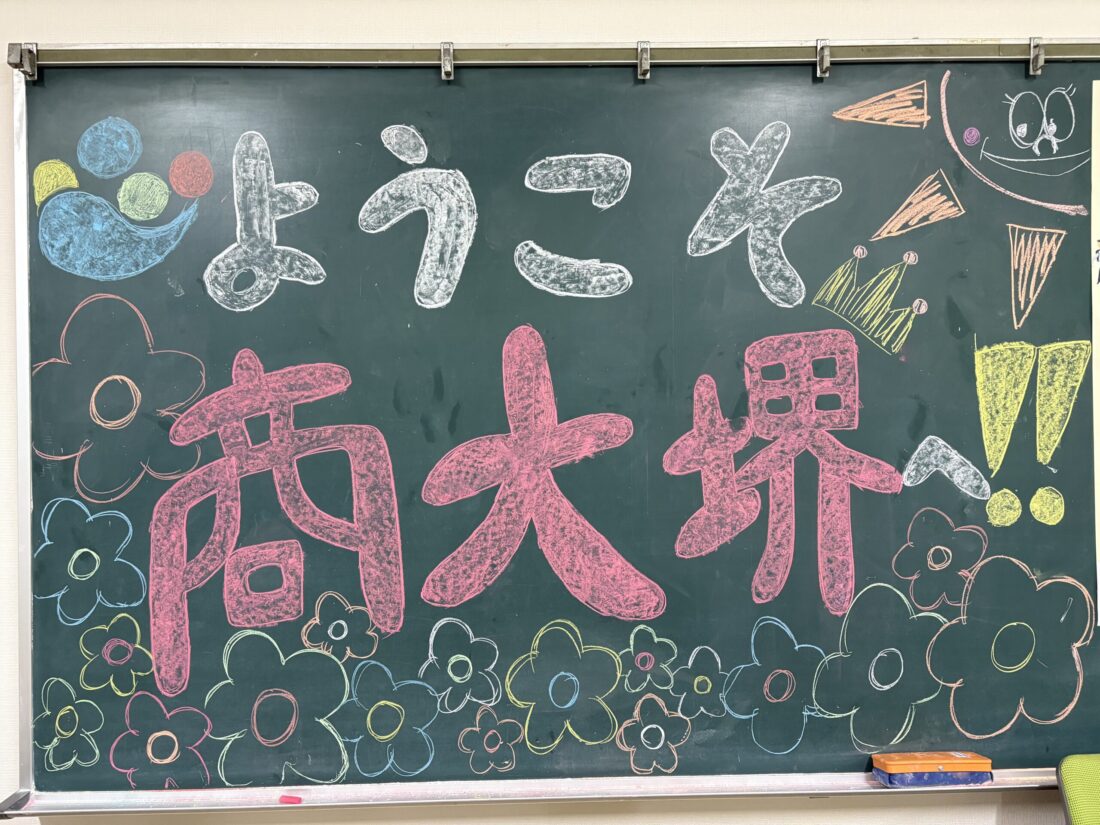 ようこそ
商大堺へ!!